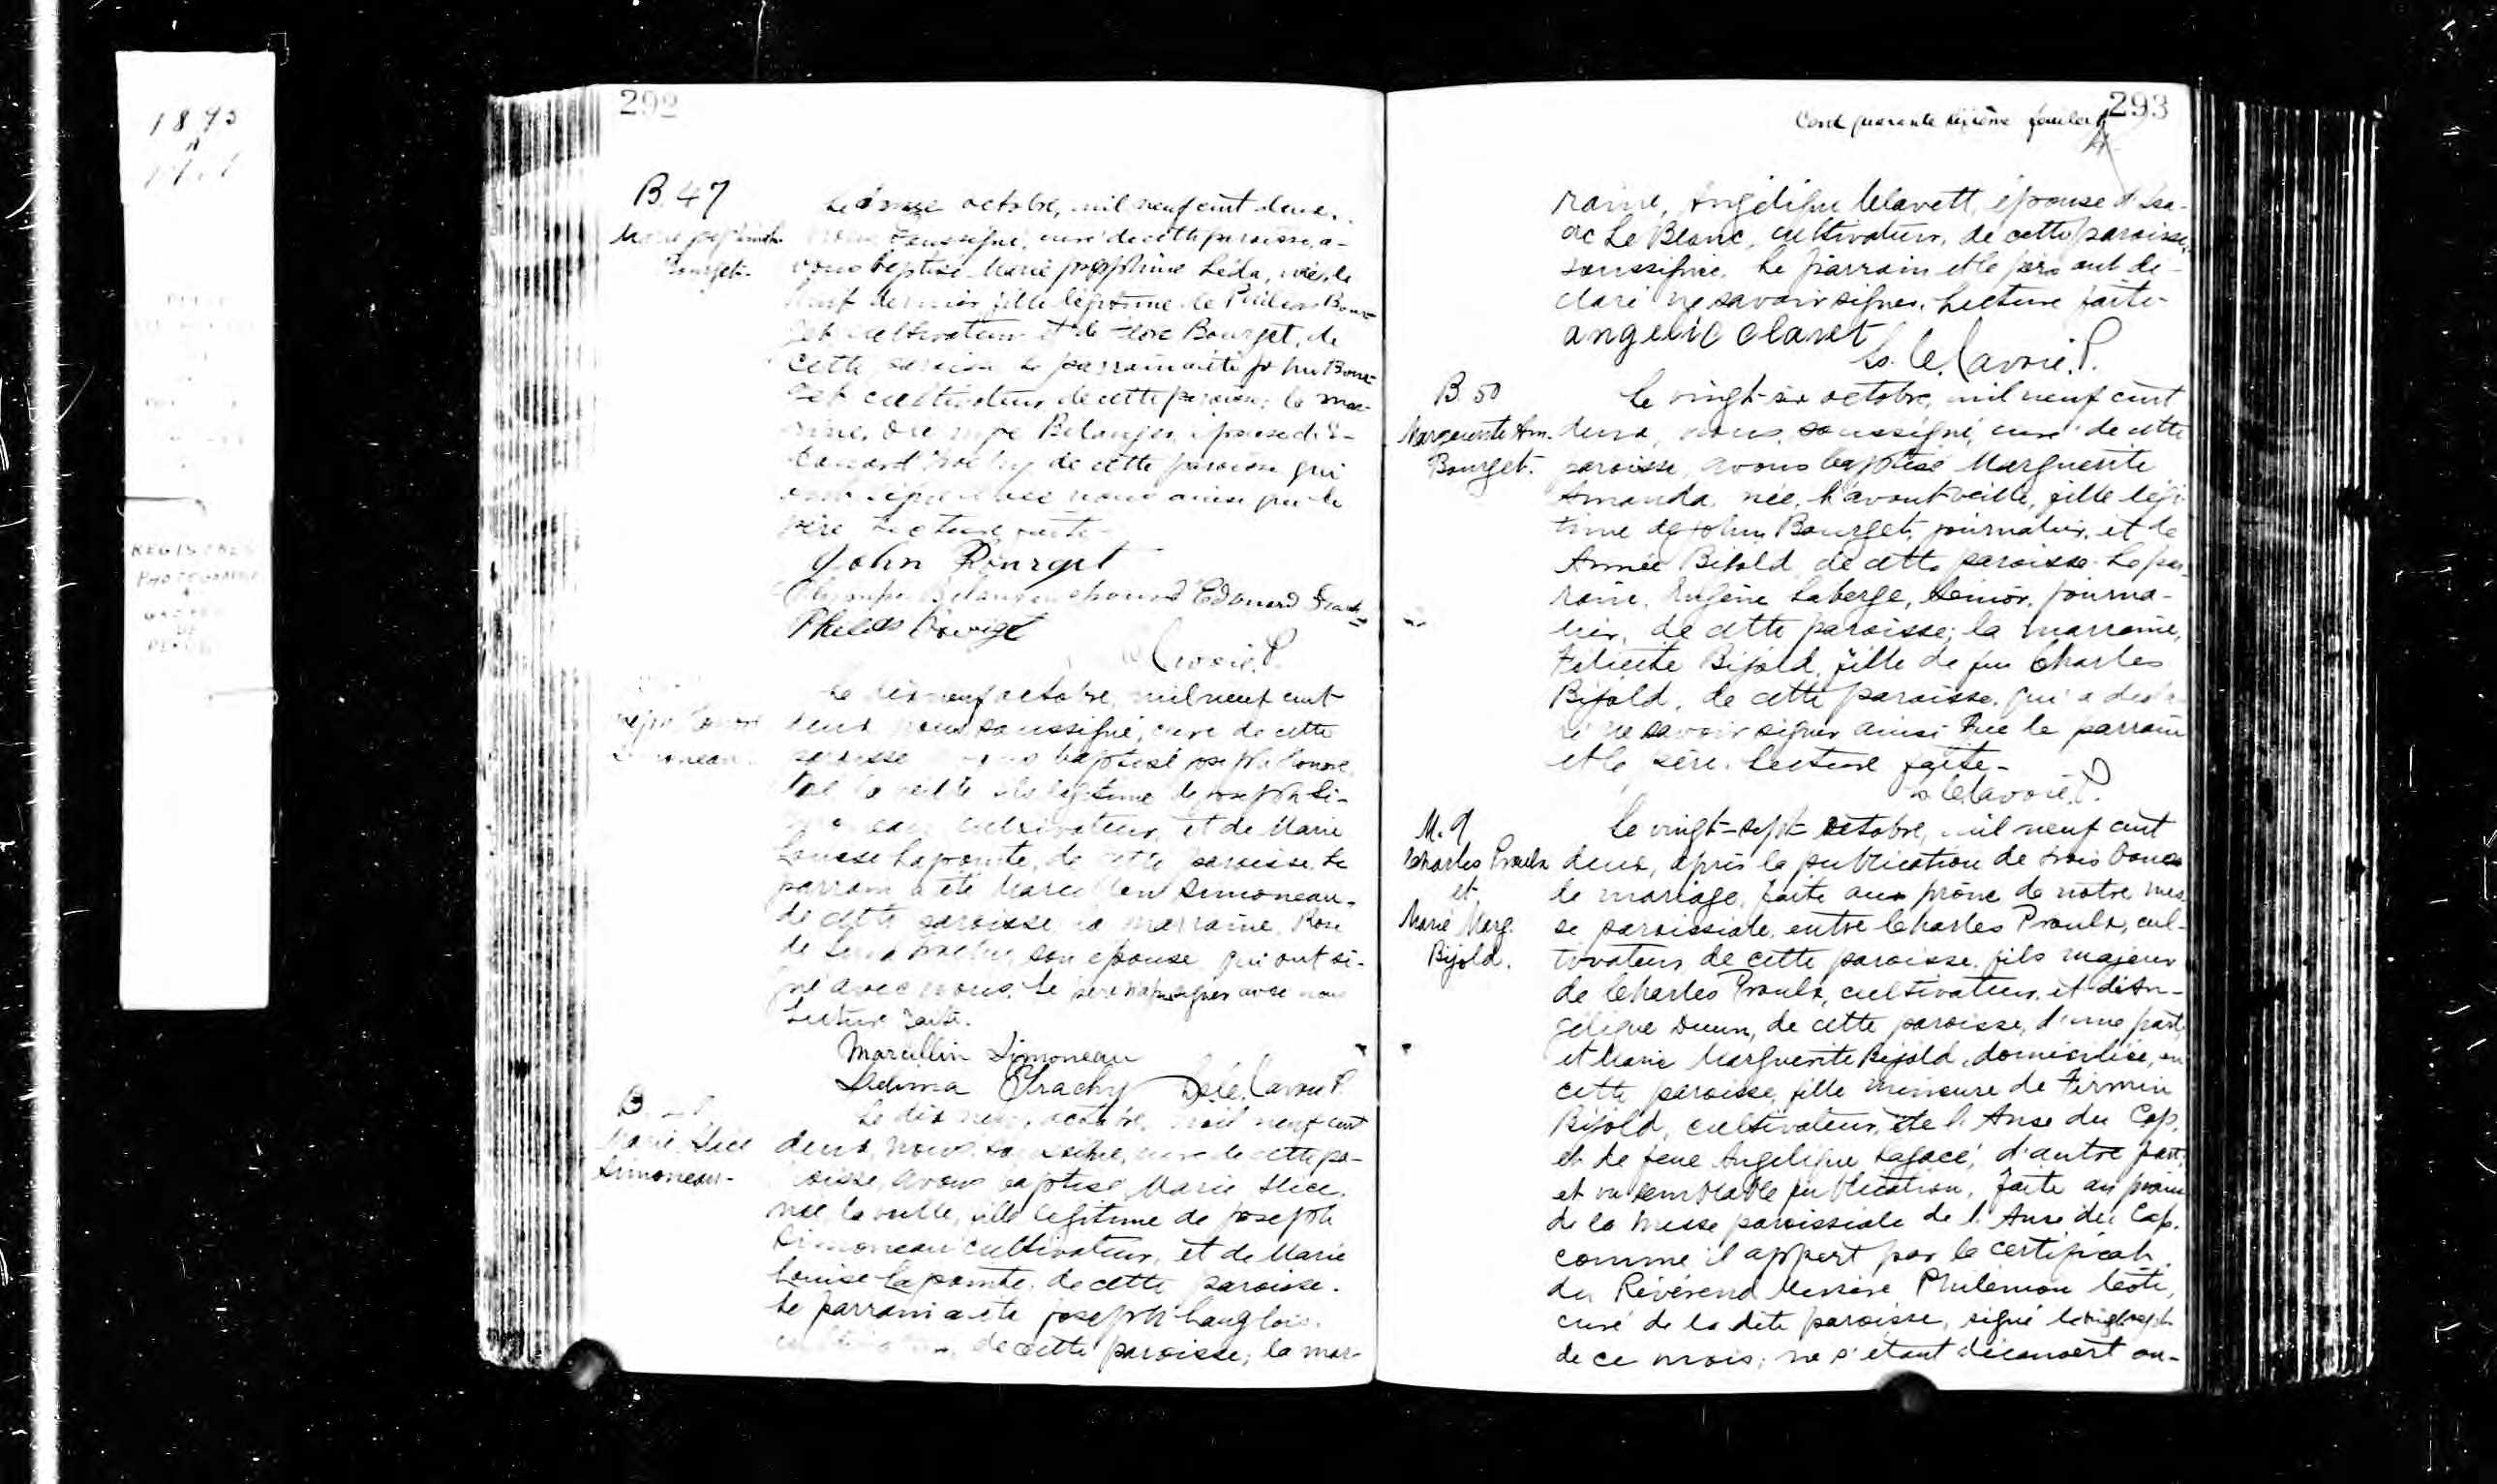 1895
A
REGISTRES
PHOTOGRAPHIE
DE
292
B. 47
Marie Josephine
Bourget.
Le onze octobre, mil neuf cent deux,
nous soussigné, curé de cette paroisse, a-
vons baptisé Marie Josephine Léda, née, le
neuf dernier fille légitime de Phileas Bour-
get cultivateur et de Flore Bourget, de
cette paroisse Le parrain a été John Bour-
get cultivateur de cette paroisse; la mar-
raine, Olympe Belanger, épouse d'E-
douard Trachy de cette paroisse qui
ont signé avec nous ainsi que le
père Lecture faite-
John Bourget
Olympe Belanger épouse Edouard Trachy
Phileas Bourget
Lavoie. P.
Simoneau.
Le dix neuf octobre, mil neuf cent
deux nous soussigné, curé de cette
paroisse avons baptisé Joseph
né la veille fils légitime de Joseph Si-
moneau cultivateur, et de Marie
Louise Lapointe, de cette paroisse. Le
parrain a été Marcellin Simoneau.
de cette paroisse la marraine, Rose
de Lima Trachy son épouse qui ont si-
gné avec nous. Le père n'a pu signer avec nous
Lecture faite.
Marcellin Simoneau
Delima Trachy Ls. C. Lavoie P.
B.
Marie Alice
Simoneau-
Le dix neuf, octobre, mil neuf cent
deux, nous soussigné, curé de cette pa-
roisse, avons baptisé Marie Alice,
née la veille, fille légitime de Joseph
Simoneau cultivateur, et de Marie
Louise Lapointe, de cette paroisse.
Le parrain a été Joseph Langlois.
cultivateur, de cette paroisse; la mar-
293
Cent quarante septième feuillet
raine, Angélique Clavett, épouse d'Isa-
ac Le Blanc, cultivateur, de cette paroisse,
soussignée. Le parrain et le père ont dé-
claré ne savoir signer. Lecture faite-
angelic claret
Ls. C. Lavoie. P.
B. 50
Marguerite Am.
Bourget.
Le vingt-six octobre, mil neuf cent
deux, nous, soussigné, curé de cette
paroisse, avons baptisé Marguerite
Amanda, née, l'avant-veille, fille légi-
time de John Bourget, journalier, et de
Année Bijold, de cette paroisse. Le par-
rain, Eugène Laberge, Senior, journa-
lier, de cette paroisse; la marraine,
Félicité Bijold, fille de feu Charles
Bijold, de cette paroisse, qui a décla-
ré ne savoir signer ainsi que le parrain
et le père. Lecture faite-
Ls C. Lavoie. P.
M. 9
Charles Proulx
et
Marie Marg.
Bijold.
Le vingt-sept octobre, mil neuf cent
deux, après la publication de trois bancs
de mariage, faite aux prône de notre mes-
se paroissiale, entre Charles Proulx, cul-
tivateur, de cette paroisse, fils majeur
de Charles Proulx, cultivateur, et d'An-
gélique Dunn, de cette paroisse, d'une part,
et Marie Marguerite Bijold, domiciliée, en
cette paroisse, fille mineure de Firmin
Bijold, cultivateur, de l'Anse du Cap,
et de feue Angélique Lagacé, d'autre part,
et vu semblable publication, faite au prône
de la messe paroissiale de l'Anse du Cap.
comme il appert par le certificat
du Révérend Messire Philémon Côté,
curé de la dite paroisse, signé le vingt-sept
de ce mois; ne s'étant découvert au-